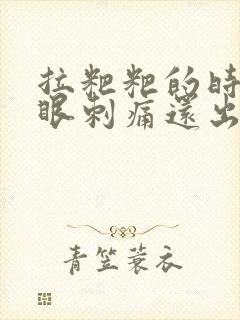 拉粑粑的时
眼刺痛还出
青笠蓑衣